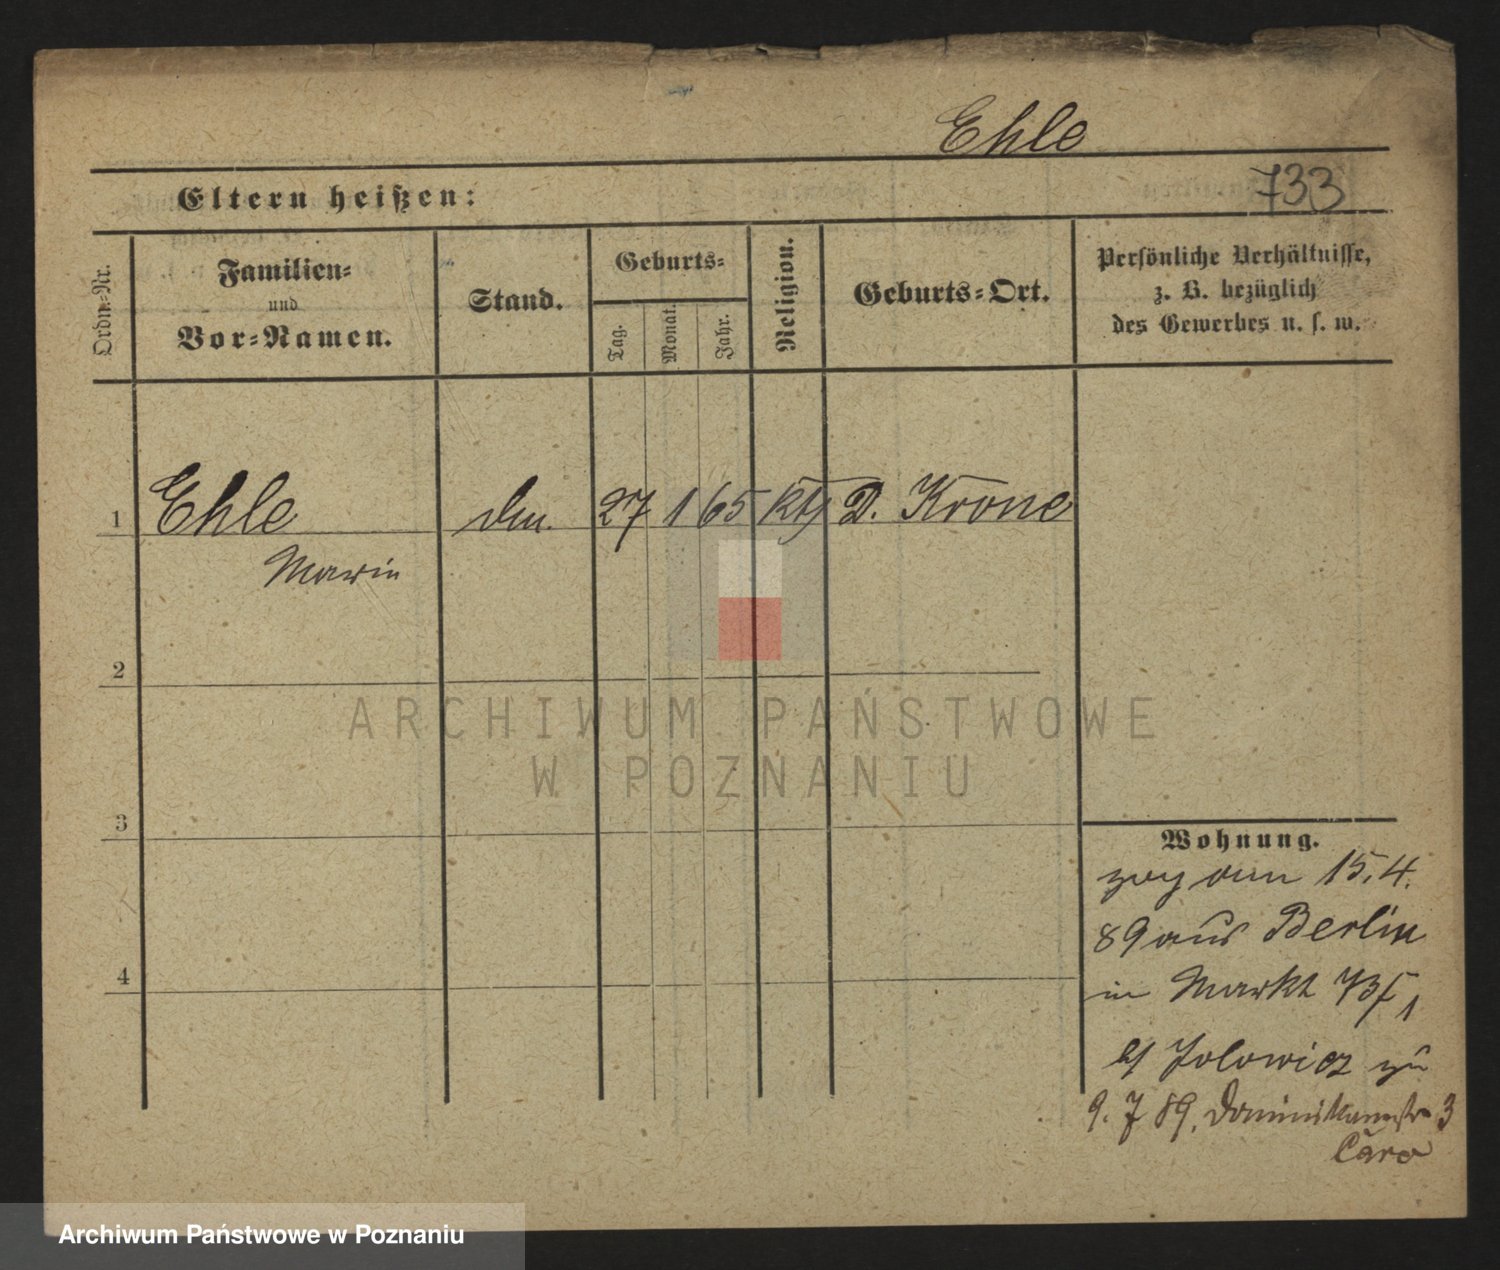 Ehle
Eltern heißen:
733
Ordn.-Nr.
Familien-
und
Vor-Namen.
Stand.
Geburts-
Tag.
Monat.
Jahr.
Religion.
Geburts-Ort.
Persönliche Verhältnisse,
z. B. bezüglich
des Gewerbes u. s. w.
1 Ehle 27 1 65 kth D. Krone
Marie
2
ARCHIWUM PAŃSTWOWE
W POZNANIU
3
4
Wohnung.
zog am 15.4.
89 aus Berlin
in Markt 73
b/ Jolowicz zu
9. 7 89. Dominikanerstr 3
Caro
Archiwum Państwowe w Poznaniu